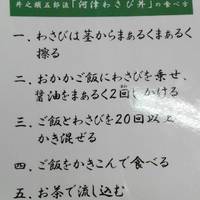 井之頭五郎流「河津わさび丼」の食べ方
一、わさびは茎からまぁるくまぁるく
擦る
二、おかかご飯にわさびを乗せ、
醤油をまぁるく2回しかける
三、ご飯とわさびを20回以上
かき混ぜる
四、ご飯をかきこんで食べる
五、お茶で流し込む